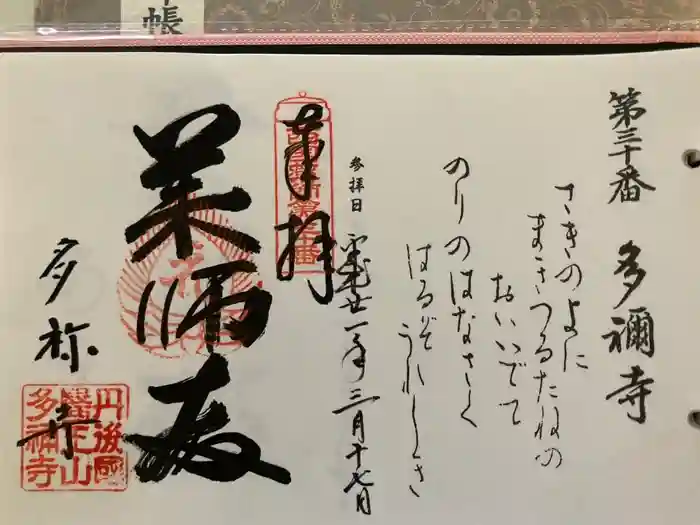 帳
第三十番　多禰寺
さきのよに
まきつるたねの
おいいでて
のりのはなさく
はるぞうれしき
参拝日
平成廿一年三月十七日
奉拝
西国薬師第三十番
薬師殿
多祢寺
丹後國
醫王山
多禰寺